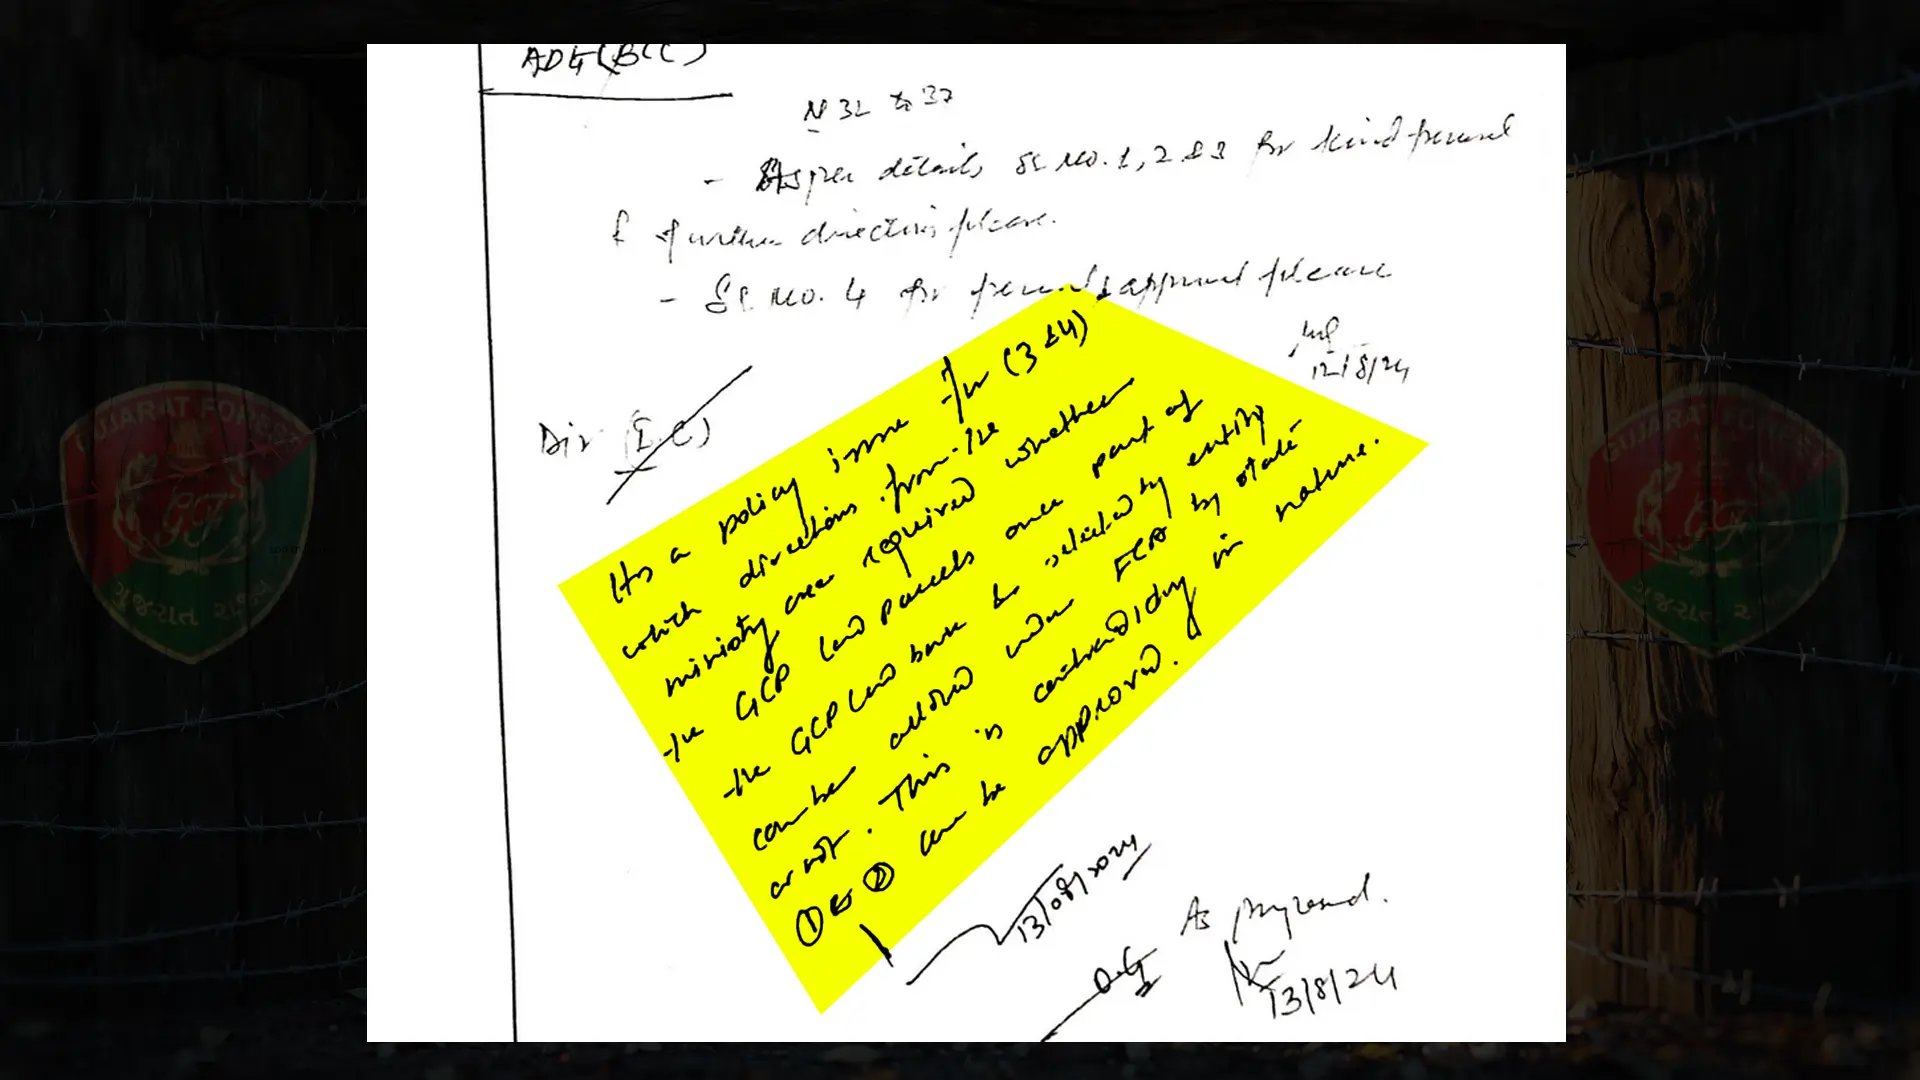 ADG(BCC)
N 32 to 37
- As per details Sl. No. 1, 2 & 3 for kind perusal
& further directions please.
- Sl. No. 4 for perusal & approval please
12/8/24
Dir (EC)
Its a policy issue for (3 & 4)
which directions from the
ministry are required whether
the GCP land parcels once part of
the GCP land bank & selected by entity
can be allowed under FCA by state
or not. This is contradictory in nature.
① & ② can be approved.
13/08/2024
DG
As proposed.
13/8/24
GUJARAT FOREST
GF
ગુજરાત રાજ્ય
GUJARAT FOREST
GF
ગુજરાત રાજ્ય